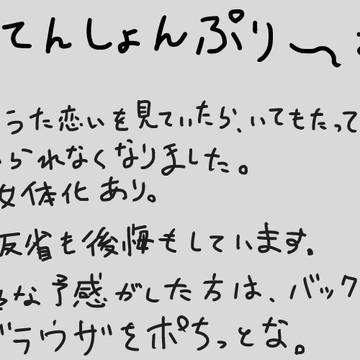 てんしょんぷり〜
うた恋いを見ていたら、いてもたって
られなくなりました。
女体化あり。
反省も後悔もしています。
な予感がした方は、バック
ブラウザをポちっとな。